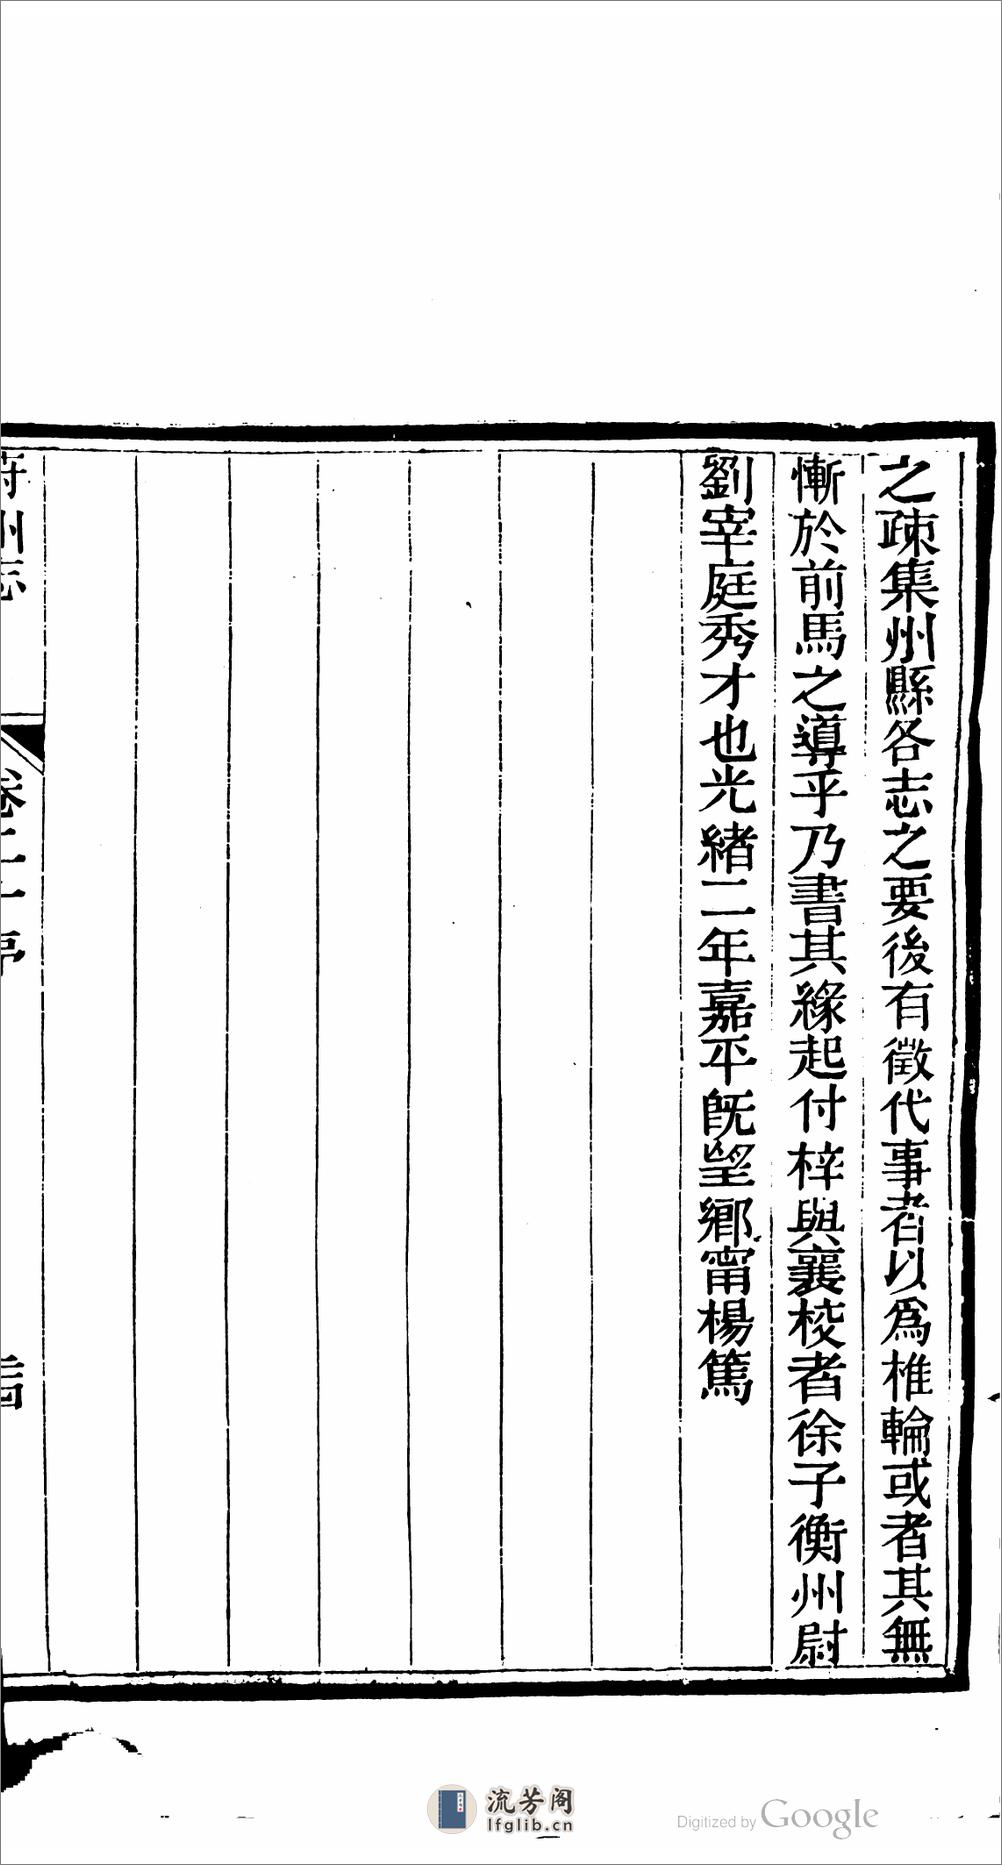 之疎集州縣各志之要後有徵代事者以爲椎輪或者其無
慚於前馬之導乎乃書其緣起付梓與襄校者徐子衡州尉
劉宰庭秀才也光緒二年嘉平旣望鄉甯楊篤
州志
卷
序
流芳阁
lfglib.cn
Digitized by Google